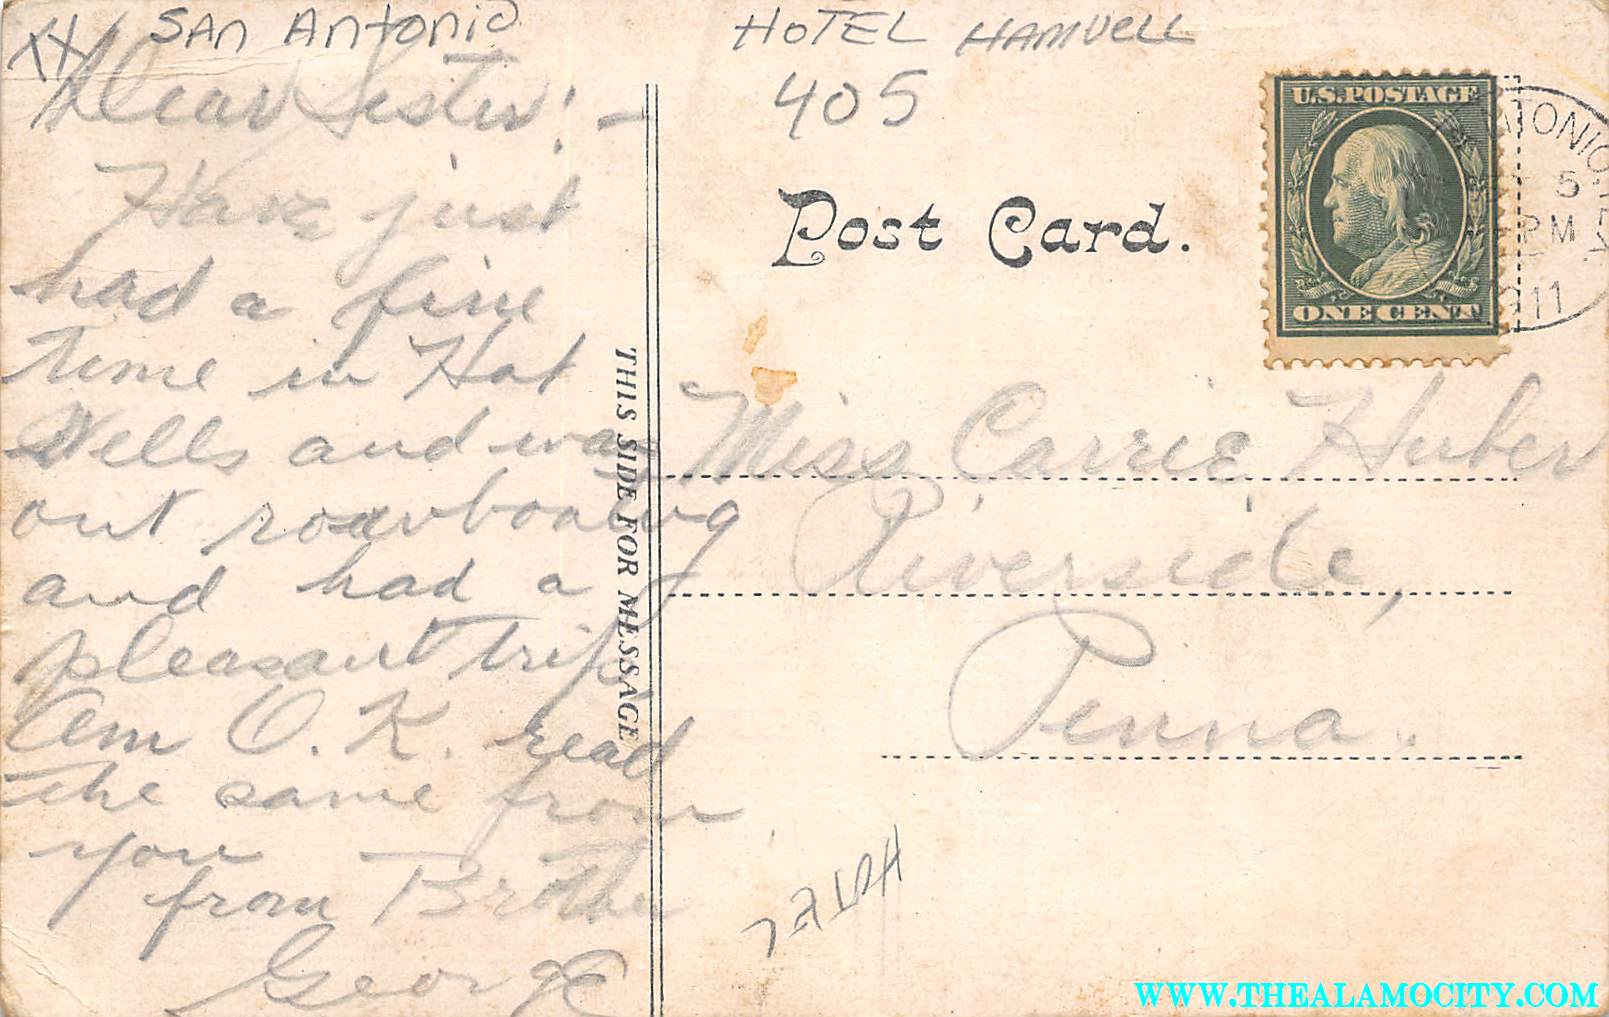 XX San Antonio
HOTEL HAMVELL
405
Dear Sister! –
Have just
had a fine
time in Hot
Wells and was
out rowboating
and had a
pleasant trip
Am O.K. read
the same from
you
from Brother
George
THIS SIDE FOR MESSAGE
Post Card.
U.S.POSTAGE
ONE CENT
5
PM
1911
Miss Carrie Huber
Riverside,
Penna.
HOTEL
WWW.THEALAMOCITY.COM